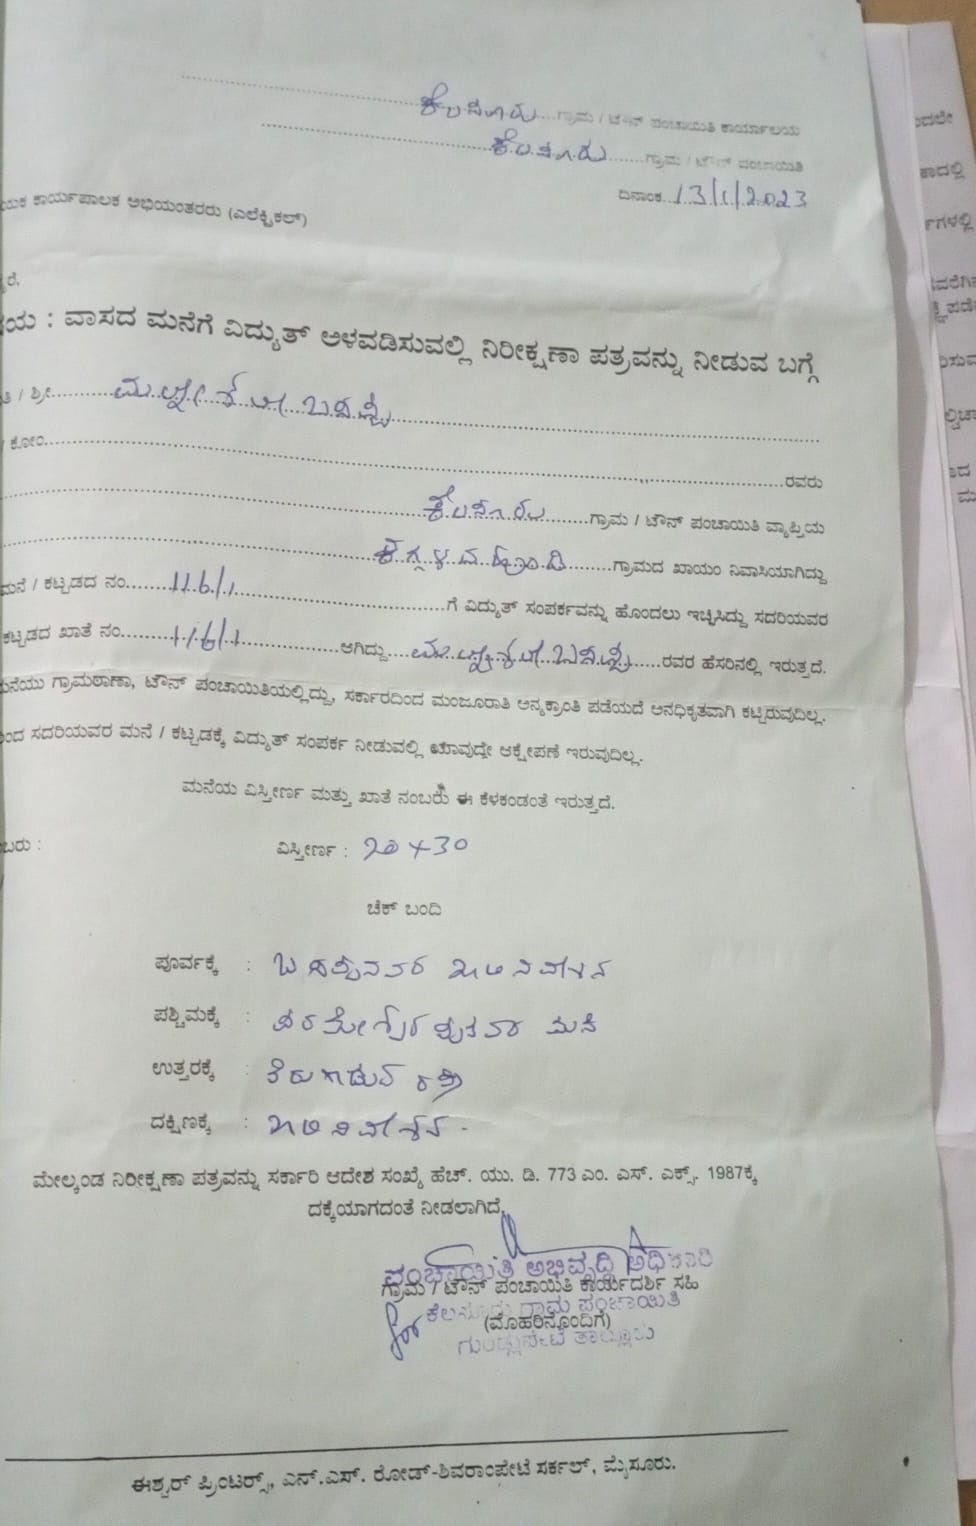 ಕೆಲಸೂರು ಗ್ರಾಮ / ಟೌನ್ ಪಂಚಾಯಿತಿ ಕಾರ್ಯಾಲಯ
ಕೆಲಸೂರು ಗ್ರಾಮ / ಟೌನ್ ಪಂಚಾಯಿತಿ
ದಿನಾಂಕ 13/1/2023
ಯಕ ಕಾರ್ಯಪಾಲಕ ಅಭಿಯಂತರರು (ಎಲೆಕ್ಟ್ರಿಕಲ್)
ರೆ,
ಯ : ವಾಸದ ಮನೆಗೆ ವಿದ್ಯುತ್ ಅಳವಡಿಸುವಲ್ಲಿ ನಿರೀಕ್ಷಣಾ ಪತ್ರವನ್ನು ನೀಡುವ ಬಗ್ಗೆ
ತಿ / ಶ್ರೀ
/ ಕೋಂ ರವರು
ಕೆಲಸೂರು ಗ್ರಾಮ / ಟೌನ್ ಪಂಚಾಯಿತಿ ವ್ಯಾಪ್ತಿಯ
ಕಗ್ಗಳದಹುಂಡಿ ಗ್ರಾಮದ ಖಾಯಂ ನಿವಾಸಿಯಾಗಿದ್ದು
ಮನೆ / ಕಟ್ಟಡದ ನಂ 116/1 ಗೆ ವಿದ್ಯುತ್ ಸಂಪರ್ಕವನ್ನು ಹೊಂದಲು ಇಚ್ಛಿಸಿದ್ದು ಸದರಿಯವರ
ಕಟ್ಟಡದ ಖಾತೆ ನಂ 116/1 ಆಗಿದ್ದು ರವರ ಹೆಸರಿನಲ್ಲಿ ಇರುತ್ತದೆ.
ನೆಯು ಗ್ರಾಮಠಾಣಾ, ಟೌನ್ ಪಂಚಾಯಿತಿಯಲ್ಲಿದ್ದು, ಸರ್ಕಾರದಿಂದ ಮಂಜೂರಾತಿ ಅನ್ಯಕ್ರಾಂತಿ ಪಡೆಯದೆ ಅನಧಿಕೃತವಾಗಿ ಕಟ್ಟಿರುವುದಿಲ್ಲ.
ಂದ ಸದರಿಯವರ ಮನೆ / ಕಟ್ಟಡಕ್ಕೆ ವಿದ್ಯುತ್ ಸಂಪರ್ಕ ನೀಡುವಲ್ಲಿ ಯಾವುದೇ ಆಕ್ಷೇಪಣೆ ಇರುವುದಿಲ್ಲ.
ಮನೆಯ ವಿಸ್ತೀರ್ಣ ಮತ್ತು ಖಾತೆ ನಂಬರು ಈ ಕೆಳಕಂಡಂತೆ ಇರುತ್ತದೆ.
ಬರು : ವಿಸ್ತೀರ್ಣ : 20+30
ಚೆಕ್ ಬಂದಿ
ಪೂರ್ವಕ್ಕೆ : ಖಾಲಿ ನಿವೇಶನ
ಪಶ್ಚಿಮಕ್ಕೆ : ಮನೆ
ಉತ್ತರಕ್ಕೆ : ತಿರುಗಾಡುವ ರಸ್ತೆ
ದಕ್ಷಿಣಕ್ಕೆ : ಖಾಲಿ ನಿವೇಶನ.
ಮೇಲ್ಕಂಡ ನಿರೀಕ್ಷಣಾ ಪತ್ರವನ್ನು ಸರ್ಕಾರಿ ಆದೇಶ ಸಂಖ್ಯೆ ಹೆಚ್. ಯು. ಡಿ. 773 ಎಂ. ಎಸ್. ಎಕ್ಸ್. 1987ಕ್ಕೆ
ದಕ್ಕೆಯಾಗದಂತೆ ನೀಡಲಾಗಿದೆ.
ಪಂಚಾಯಿತಿ ಅಭಿವೃದ್ಧಿ ಅಧಿಕಾರಿ
ಗ್ರಾಮ / ಟೌನ್ ಪಂಚಾಯಿತಿ ಕಾರ್ಯದರ್ಶಿ ಸಹಿ
ಕೆಲಸೂರು ಗ್ರಾಮ ಪಂಚಾಯಿತಿ
(ಮೊಹರಿನೊಂದಿಗೆ)
ಗುಂಡ್ಲುಪೇಟೆ ತಾಲ್ಲೂಕು
ಈಶ್ವರ್ ಪ್ರಿಂಟರ್ಸ್, ಎನ್.ಎಸ್. ರೋಡ್-ಶಿವರಾಂಪೇಟೆ ಸರ್ಕಲ್, ಮೈಸೂರು.